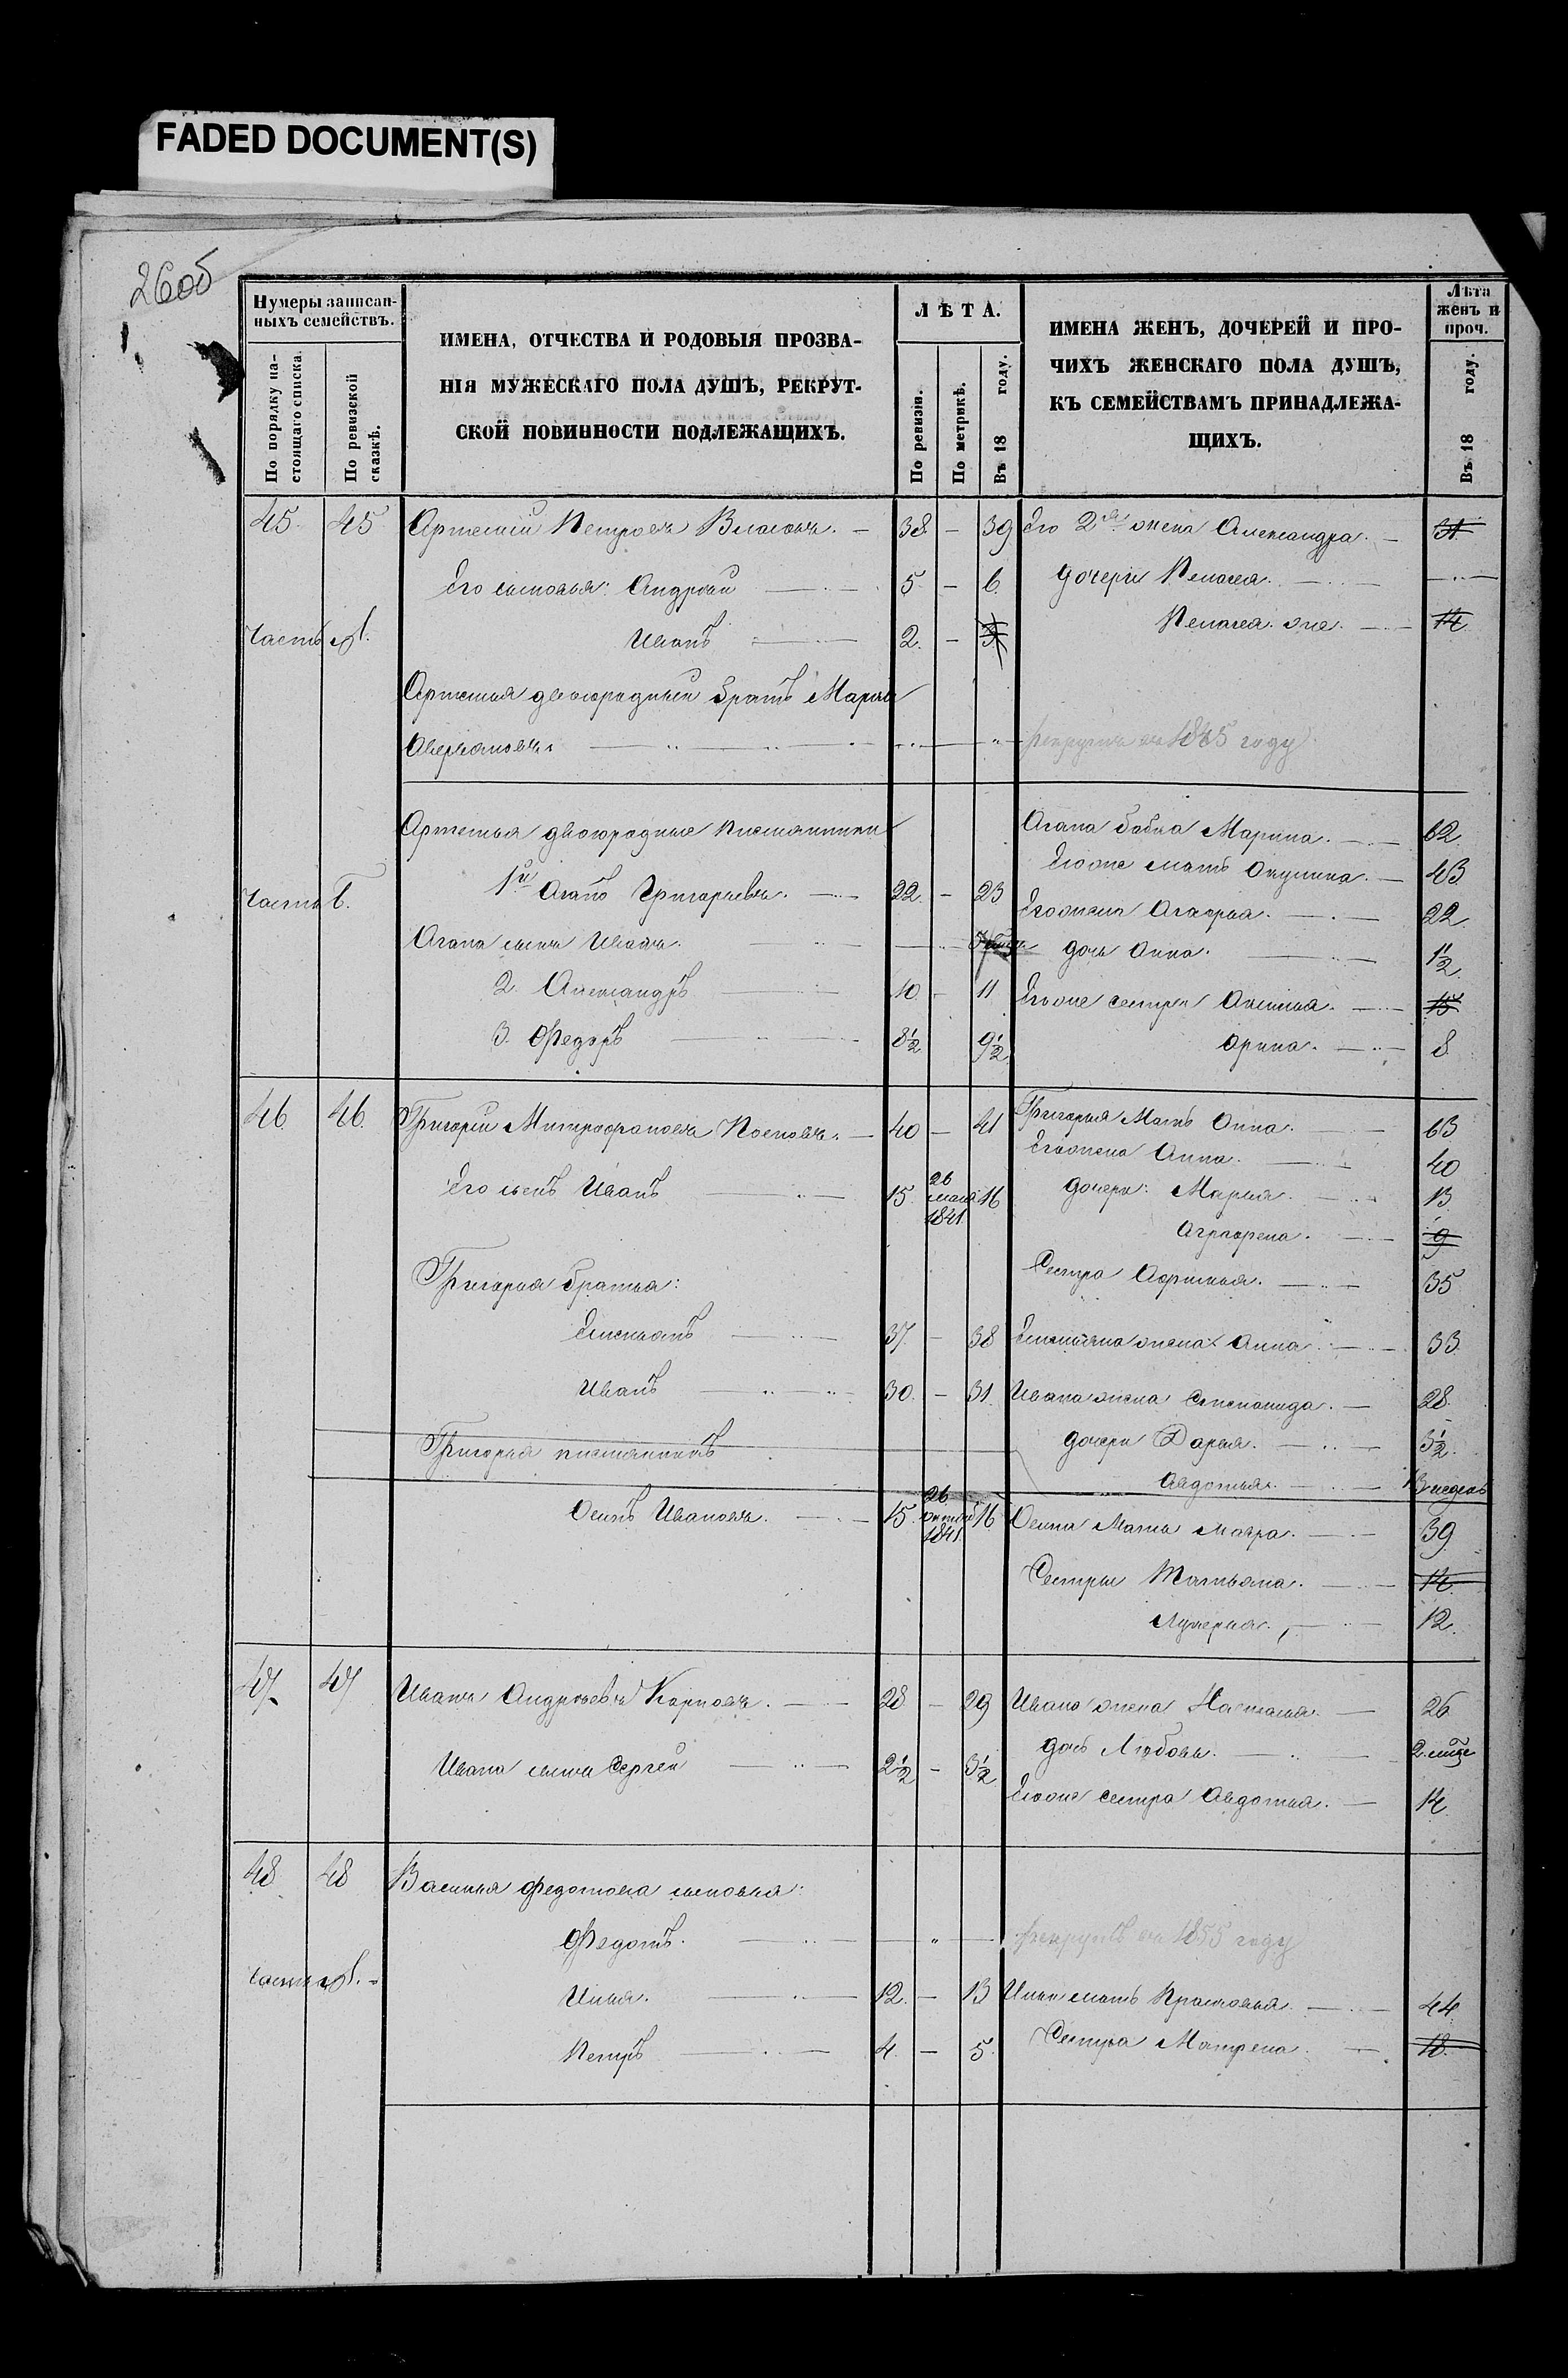 FADED DOCUMENT(S)
26об
Нумеры записан-
ныхъ семействъ.
По порядку на-
стоящаго списка.
По ревизской
сказкѣ.
ИМЕНА, ОТЧЕСТВА И РОДОВЫЯ ПРОЗВА-
НІЯ МУЖЕСКАГО ПОЛА ДУШЪ, РЕКРУТ-
СКОЙ ПОВИННОСТИ ПОДЛЕЖАЩИХЪ.
ЛѢТА.
По ревизіи.
По метрикѣ.
Въ 18 году.
ИМЕНА ЖЕНЪ, ДОЧЕРЕЙ И ПРО-
ЧИХЪ ЖЕНСКАГО ПОЛА ДУШЪ,
КЪ СЕМЕЙСТВАМЪ ПРИНАДЛЕЖА-
ЩИХЪ.
Лѣта
женъ и
проч.
Въ 18 году.
45. 45 Артемій Петровъ Власовъ. — 38 — 39 Его 2я жена Александра. — 31
Его сыновья: Андрей — 5 — 6. дочери Пелагея. —
Часть Иванъ — 2. — 3 Пелагея же. — 14
Артемья двоюродный братъ
Аверьяновъ — рекрутъ въ 1845 году
Артемья двоюродные племянники Агапа бабка Марина. — 62
Егоже мать Акулина. — 43
Часть 1й Агапъ Григорьевъ. — 22. — 23 Егожена Агафья. — 22
Агапа сынъ Иванъ. — дочь Анна. — 1½
2. Александръ — 10 — 11 Егоже сестра Аксинья. — 15
3. Федоръ — 8½ 9½ Арина. — 8
46 46. Григорій Митрофановъ — 40 — 41 Григорья Мать Анна. — 63
Егожена Анна. — 40
Его сынъ Иванъ — 15. 26 мая 1841 16 дочери: Марья. — 13
Аграфена. — 9
Григорья братья: Сестра Афимья. — 35
Емельянъ — 37. — 38 Емельяна жена Анна — 33
Иванъ — 30. — 31. Ивана жена Степанида. — 28
Григорья племянникъ дочери Дарья. — 3½
Авдотья. — 13 недель
Осипъ Ивановъ. — 15. 26 1841 16 Осипа Мать Мавра. — 39
Сестры Татьяна. — 14.
Лукерья. — 12.
47. 47 Иванъ Андреевъ Карповъ. — 28 — 29 Ивана жена Наталья. — 26
дочь Любовь. — 2.
Ивана сынъ Сергей — 2½ — 3½
Егоже сестра Авдотья. — 14
48 48 Василья Федотова сыновья:
Федотъ. — рекрутъ въ 1855 году
Часть Илья. — 12. — 13 Ильи мать Прасковья. — 44
Петръ — 4. — 5. Сестра Матрена. — 18.